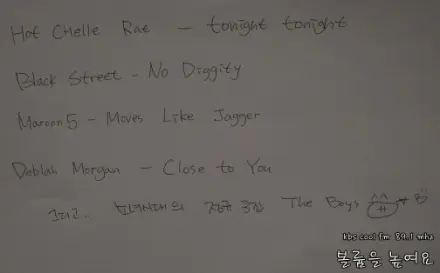 Hot Chelle Rae – tonight tonight
Black Street – No Diggity
Maroon5 – Moves Like Jagger
Deblah Morgan – Close to You
그리고.. 소녀시대의 정규 3집 The Boys ^^
kbs cool fm 89.1 mhz
볼륨을 높여요